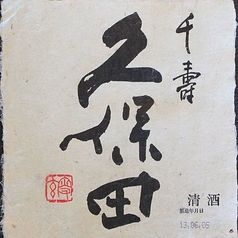 千寿
久保田
清酒
製造年月日
13.06.05